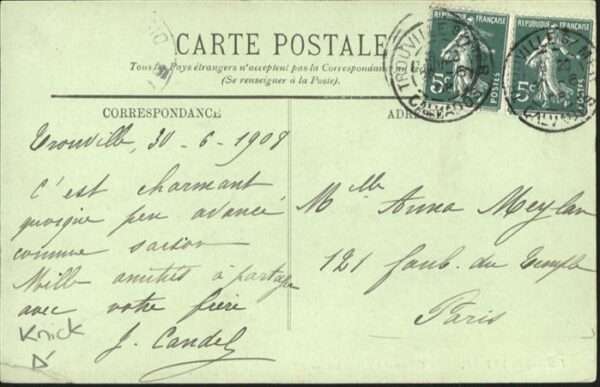 CARTE POSTALE
Tous les Pays étrangers n'acceptent pas la Correspondance
(Se renseigner à la Poste).
REPUBLIQUE FRANÇAISE
5c
POSTES
REPUBLIQUE FRANÇAISE
5c
POSTES
TROUVILLE
CALVADOS
CORRESPONDANCE
Trouville, 30-6-1908
C'est charmant
quoique peu avancé
comme saison
Mille amitiés à partager
avec votre frère
J. Candel
Knick
ADRE
Mlle Anna Meylan
121 faub. du Temple
Paris